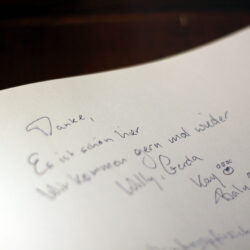 Danke,
Es ist schön hier
Wir kommen gern mal wieder
Willy, Gerda
Kay